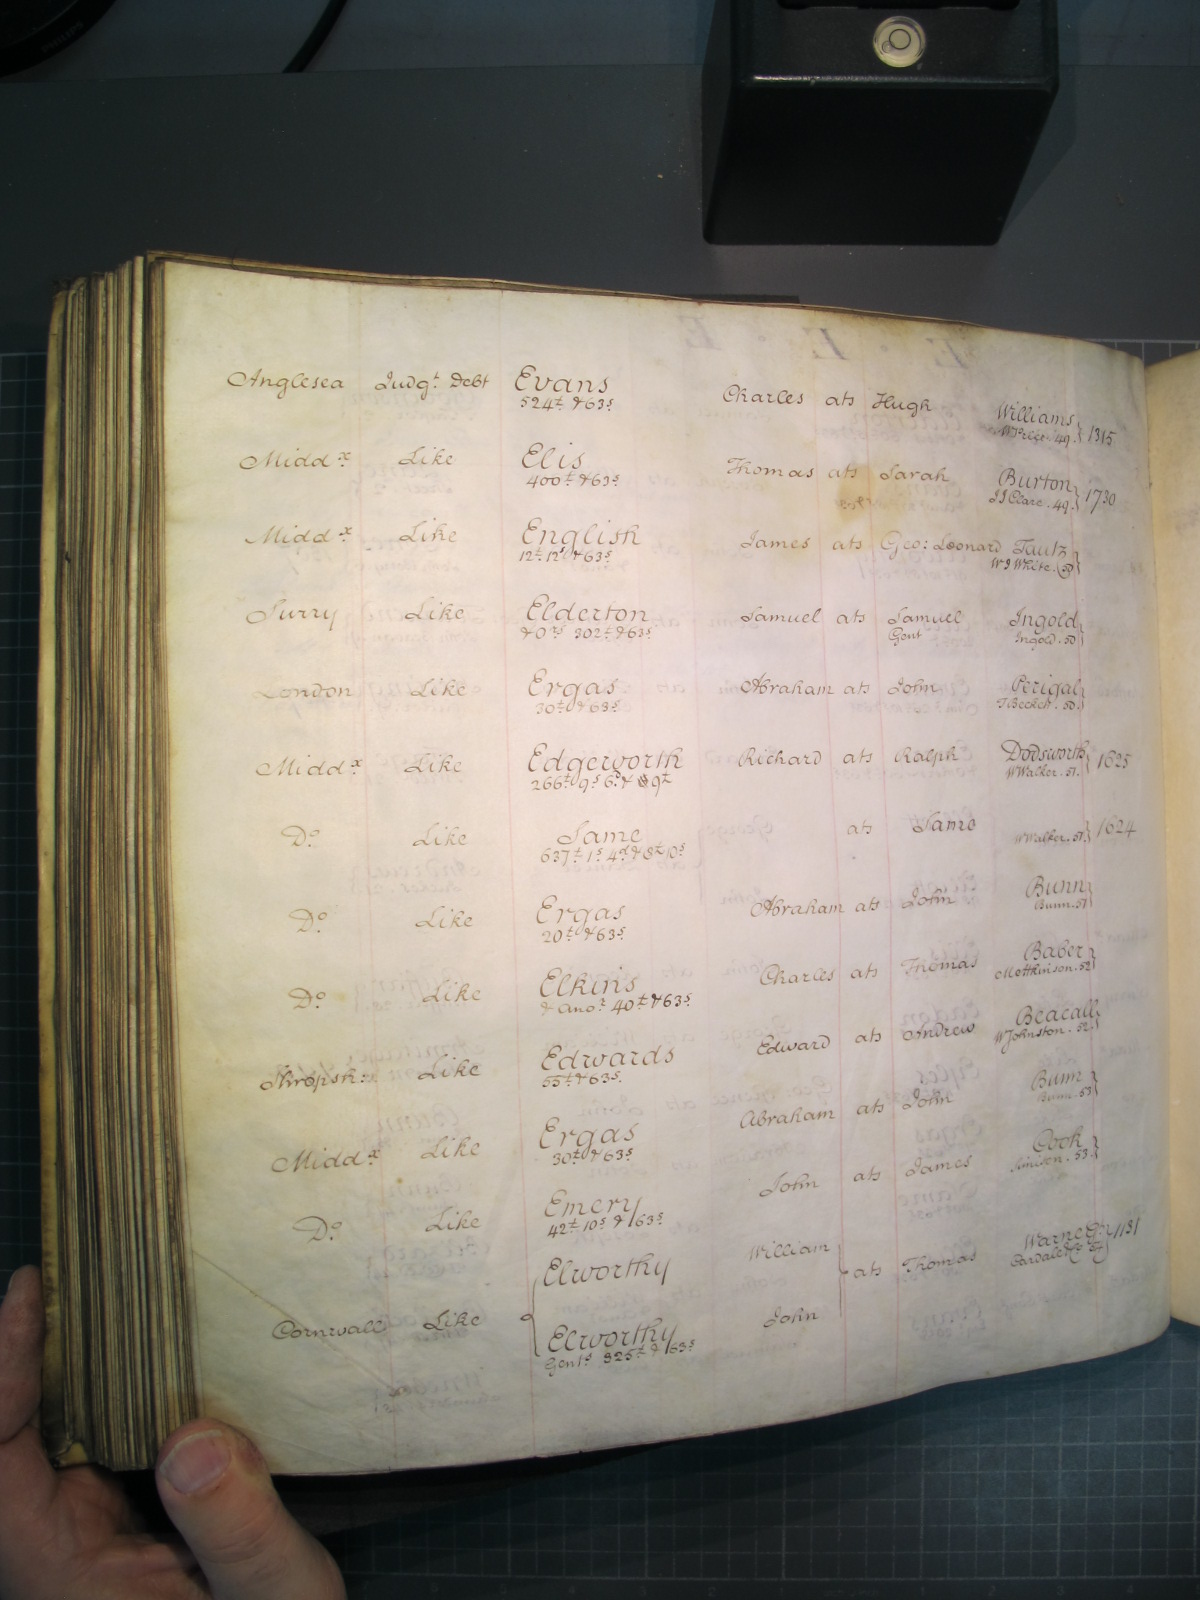 Anglesea Judgt. Debt Evans Charles ats Hugh Williams
524£ & 63s W Price . 49. 1315
Middx Like Elis Thomas ats Sarah Burton
400£ & 63s JJ Clare . 49. 1730
Middx Like English James ats Geo: Leonard Tautz
12£. 12s & 63s W J White . 50
Surry Like Elderton Samuel ats Samuel Ingold
& Ors 302£ & 63s Gent Ingold . 50
London Like Ergas Abraham ats John Perigal
30£ & 63s T Beckett . 50.
Middx Like Edgeworth Richard ats Ralph Dodsworth
266£ 9s 6d & 9£ W Walker . 51. 1625
Do Like Same ats Same
637£ 1s 4d & 8£ 10s W Walker . 51. 1624
Do Like Ergas Abraham ats John Bunn
20£ & 63s Bunn . 51
Do Like Elkins Charles ats Thomas Baber
& Anor 40£ & 63s . 52
Shropsh: Like Edwards Edward ats Andrew Beacall
55£ & 63s. W Johnston . 52.
Middx Like Ergas Abraham ats John Bunn
30£ & 63s Bunn . 53
Do Like Emery John ats James Cook
42£ 10s & 63s Simson . 53.
Elworthy William
Cornwall Like ats Thomas Warne Gt. 1131
Elworthy John
Gents 325£ & 63s